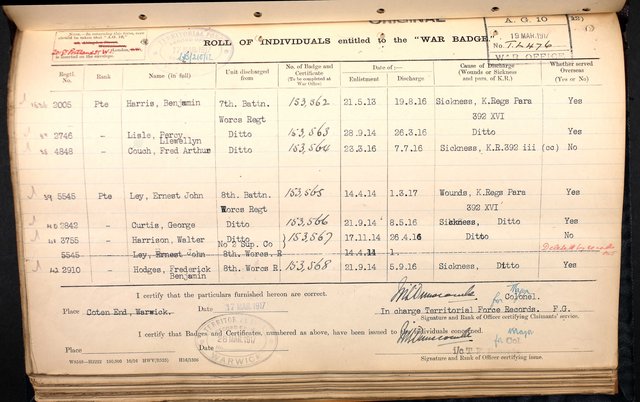 ORIGINAL
A. G. 10
19 MAR. 1917
No. T.L.476
WAR OFFICE
ROLL OF INDIVIDUALS entitled to the "WAR BADGE."
Regtl. No. Rank Name (in full) Unit discharged from No. of Badge and Certificate (To be completed at War Office) Date of :— Enlistment Discharge Cause of Discharge (Wounds or Sickness and para. of K.R.) Whether served Overseas (Yes or No)
2005 Pte Harris, Benjamin 7th. Battn. Worcs Regt 153,562 21.5.13 19.8.16 Sickness, K.Regs Para 392 XVI Yes
37 2746 - Lisle, Percy Llewellyn Ditto 153,563 28.9.14 26.3.16 Ditto Yes
38 4848 - Couch, Fred Arthur Ditto 153,564 23.3.16 7.7.16 Sickness, K.R.392 iii (cc) No
39 5545 Pte Ley, Ernest John 8th. Battn. Worcs Regt 153,565 14.4.14 1.3.17 Wounds, K.Regs Para 392 XVI Yes
40 2842 - Curtis, George Ditto 153,566 21.9.14 8.5.16 Sickness, Ditto Yes
41 3755 - Harrison, Walter Ditto No 2 Sup. Co 153,567 17.11.14 26.4.16 Ditto No
5545 - Ley, Ernest John 8th. Worcs. R 14.4.14 1.
42 2910 - Hodges, Frederick Benjamin 8th. Worcs R 153,568 21.9.14 5.9.16 Sickness, Ditto Yes
I certify that the particulars furnished hereon are correct.
Major for Colonel.
Place Coten End, Warwick. Date 17 MAR. 1917 In charge Territorial Force Records. F.G.
Signature and Rank of Officer certifying Claimants' service.
I certify that Badges and Certificates, numbered as above, have been issued to the individuals concerned.
TERRITORIAL
26 MAR. 1917
WARWICK
Major for Col
Place Date
Signature and Rank of Officer certifying issue.